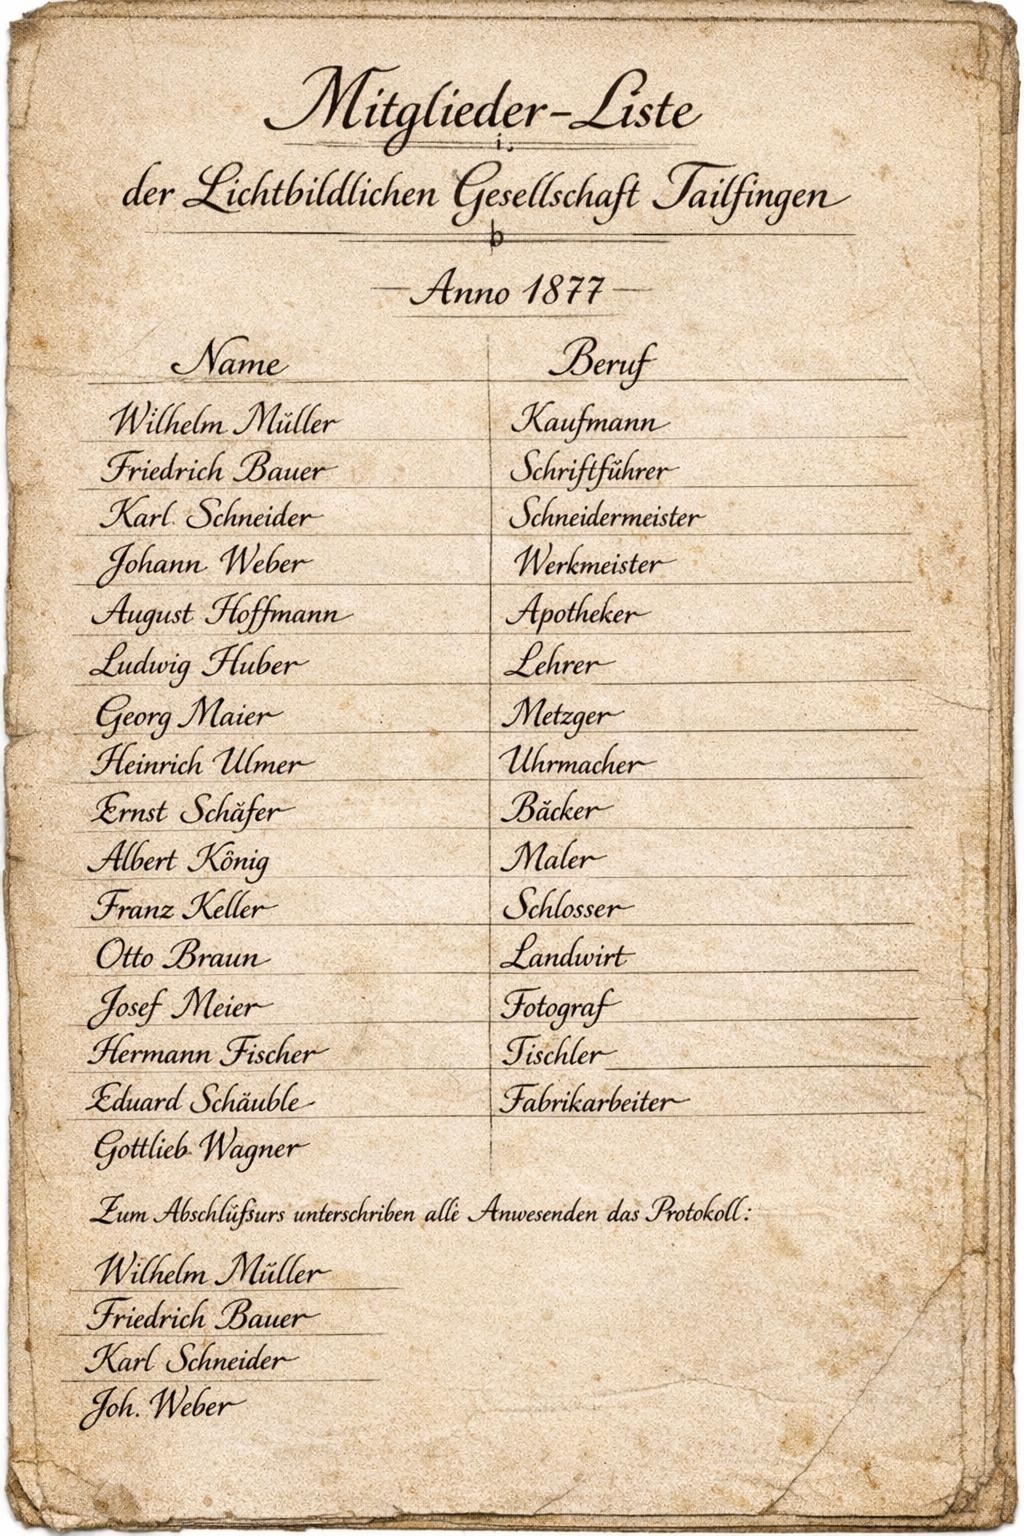 Mitglieder-Liste
i.
der Lichtbildlichen Gesellschaft Tailfingen
b
Anno 1877
Name Beruf
Wilhelm Müller Kaufmann
Friedrich Bauer Schriftführer
Karl Schneider Schneidermeister
Johann Weber Werkmeister
August Hoffmann Apotheker
Ludwig Huber Lehrer
Georg Maier Metzger
Heinrich Ulmer Uhrmacher
Ernst Schäfer Bäcker
Albert König Maler
Franz Keller Schlosser
Otto Braun Landwirt
Josef Meier Fotograf
Hermann Fischer Tischler
Eduard Schäuble Fabrikarbeiter
Gottlieb Wagner
Zum Abschlüfsurs unterschriben allè Anwesenden das Protokoll:
Wilhelm Müller
Friedrich Bauer
Karl Schneider
Joh. Weber